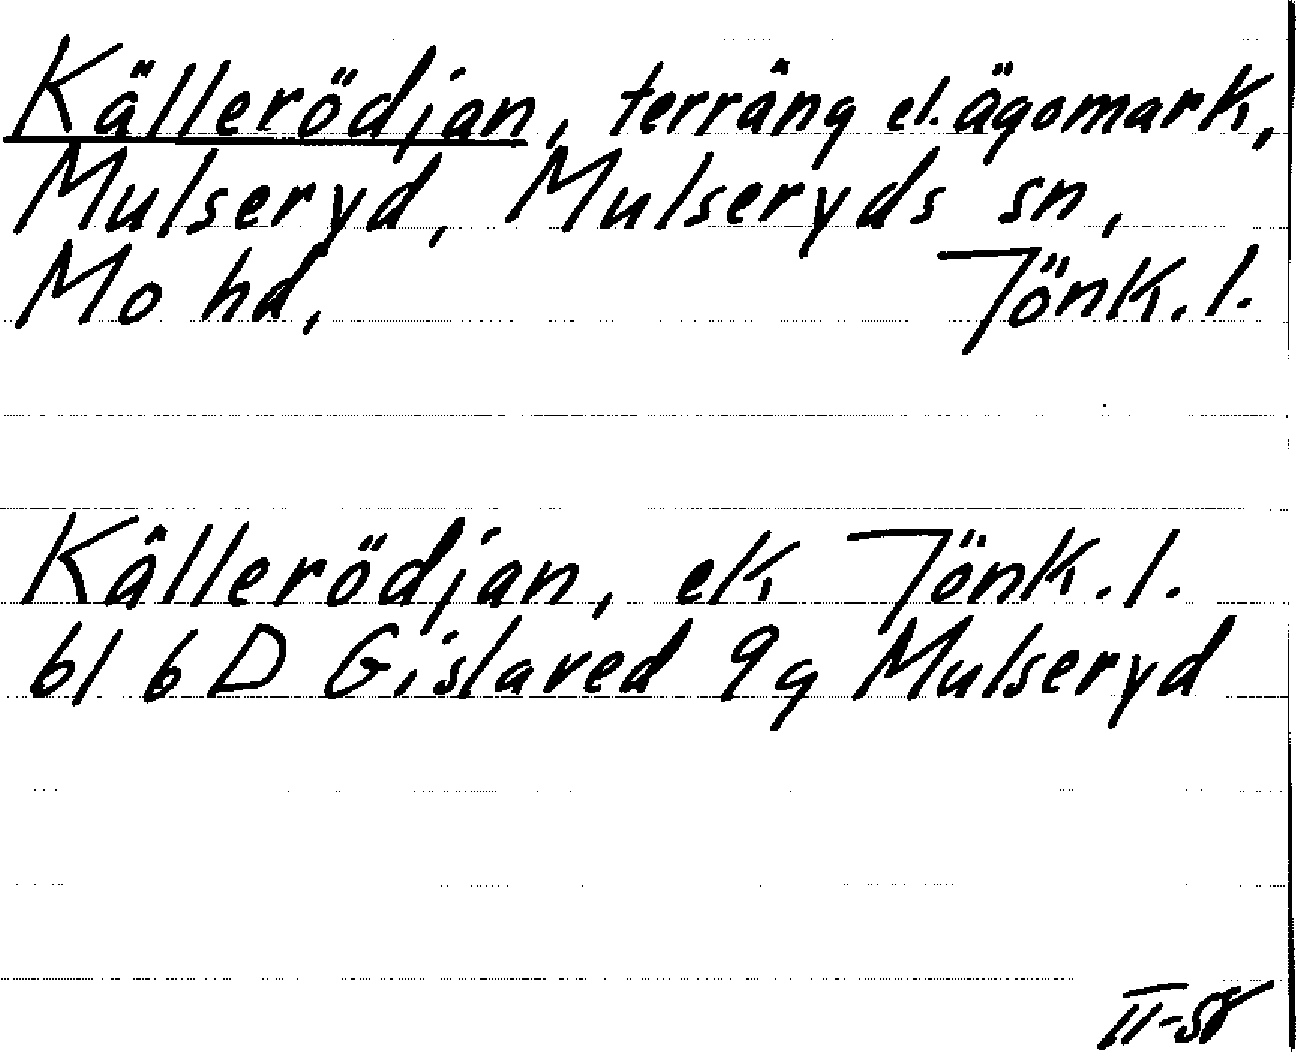 Källerödjan, terräng el. ägomark,
Mulseryd, Mulseryds sn,
Mo hd, Jönk. l.
Källerödjan, ek Jönk. l.
bl 6 D Gislaved 9g Mulseryd
II-58